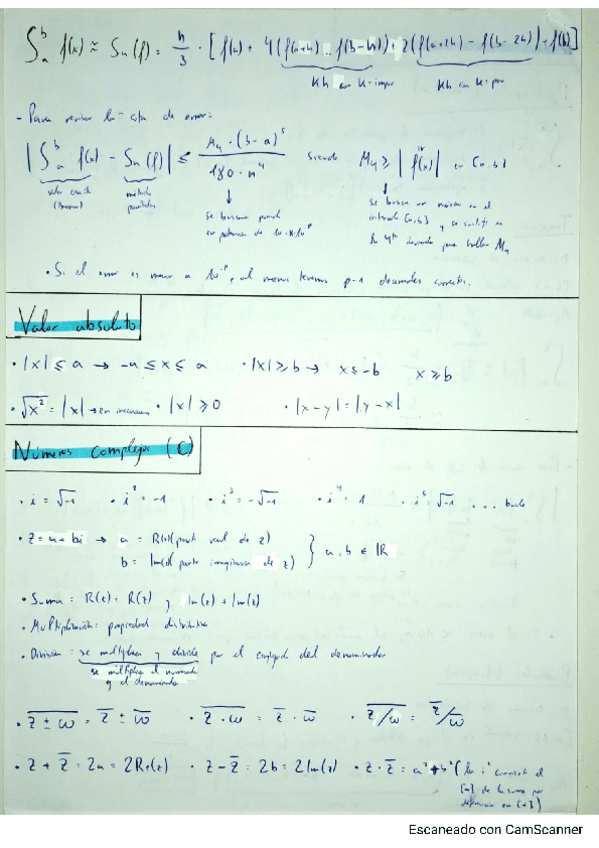 ∫_a^b f(x) ≈ Sn(f) = h/3 · [f(a) + 4(f(a+h) .. f(b-h)) + 2(f(a+2h) - f(b-2h)) + f(b)]
kh con k=impar kh con k=par
- Para revisar la cota de error:
|∫_a^b f(x) - Sn(f)| ≤ M₄·(b-a)⁵ / 180·n⁴ siendo M₄ ≥ |f^IV(x)| en [a,b]
valor exacto método
(Barrow) parábolas
se buscara ponerlo
en potencia de 10
se busca un máximo en el
intervalo [a,b] y se sustituye en
la 4ta derivada para hallar M₄
• Si el error es menor a 10^-p, al menos tenemos p-1 decimales correctos.
Valor absoluto
• |x| ≤ a → -a ≤ x ≤ a • |x| ≥ b → x ≤ -b x ≥ b
• √x² = |x| → en inecuaciones • |x| ≥ 0 • |x-y| = |y-x|
Números complejos (C)
• i = √-1 • i² = -1 • i³ = -√-1 • i⁴ = 1 √-1 ... bucle
• z = a + bi → a = R(z) (parte real de z)
b = Im(z) (parte imaginaria de z) } a, b ∈ IR
• Suma = R(z) + R(z) y Im(z) + Im(z)
• Multiplicación: propiedad distributiva
• División = se multiplica y divide por el conjugado del denominador
se multiplica el numerador
y el denominador
• \overline{z ± w} = \overline{z} ± \overline{w} • \overline{z · w} = \overline{z} · \overline{w} • \overline{z/w} = \overline{z}/\overline{w}
• z + \overline{z} = 2a = 2Re(z) • z - \overline{z} = 2b = 2Im(z) • z · \overline{z} = a² + b² (la i² convierte el
[-] de la suma por
diferencia en [+])
Escaneado con CamScanner